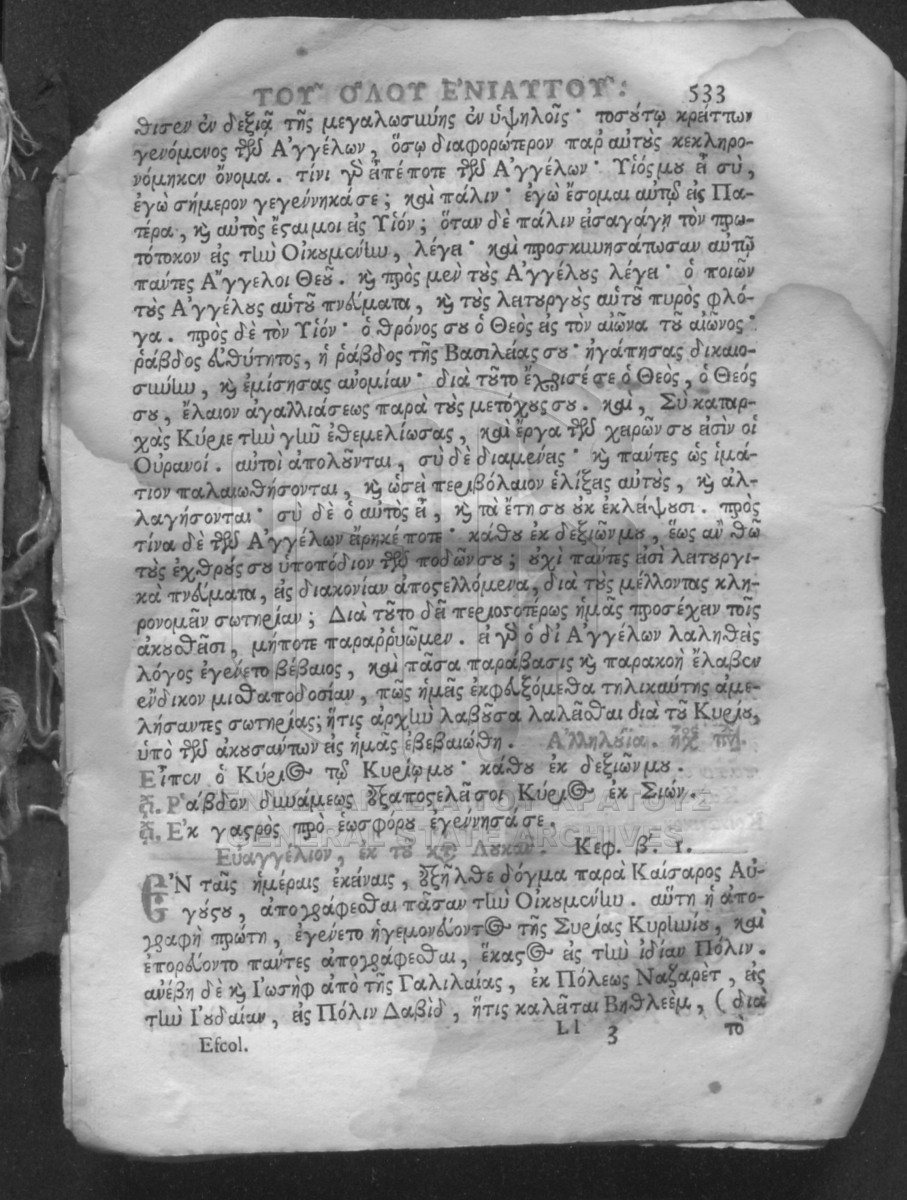 ΤΟΥ͂ Ο῞ΛΟΥ Ε᾿ΝΙΑΥΤΟΥ͂. 533
θισεν ἐν δεξιᾷ τῆς μεγαλωσύνης ἐν ὑψηλοῖς· τοσούτῳ κρείττων
γενόμενος τῶν Ἀγγέλων, ὅσῳ διαφορώτερον παρ' αὐτοὺς κεκληρο-
νόμηκεν ὄνομα. τίνι γὰρ εἶπέ ποτε τῶν Ἀγγέλων· Υἱός μου εἶ σὺ,
ἐγὼ σήμερον γεγέννηκά σε; καὶ πάλιν· ἐγὼ ἔσομαι αὐτῷ εἰς Πα-
τέρα, καὶ αὐτὸς ἔσται μοι εἰς Υἱόν; ὅταν δὲ πάλιν εἰσαγάγῃ τὸν πρω-
τότοκον εἰς τὴν Οἰκουμένην, λέγει· καὶ προσκυνησάτωσαν αὐτῷ
πάντες Ἄγγελοι Θεοῦ. καὶ πρὸς μὲν τοὺς Ἀγγέλους λέγει· ὁ ποιῶν
τοὺς Ἀγγέλους αὑτοῦ πνεύματα, καὶ τοὺς λειτουργοὺς αὑτοῦ πυρὸς φλό-
γα. πρὸς δὲ τὸν Υἱόν· ὁ θρόνος σου ὁ Θεὸς εἰς τὸν αἰῶνα τοῦ αἰῶνος·
ῥάβδος εὐθύτητος, ἡ ῥάβδος τῆς Βασιλείας σου· ἠγάπησας δικαιο-
σύνην, καὶ ἐμίσησας ἀνομίαν· διὰ τοῦτο ἔχρισέ σε ὁ Θεὸς, ὁ Θεός
σου, ἔλαιον ἀγαλλιάσεως παρὰ τοὺς μετόχους σου. καὶ, Σὺ καταρ-
χὰς Κύριε τὴν γῆν ἐθεμελίωσας, καὶ ἔργα τῶν χειρῶν σου εἰσὶν οἱ
Οὐρανοί. αὐτοὶ ἀπολοῦνται, σὺ δὲ διαμένεις· καὶ πάντες ὡς ἱμά-
τιον παλαιωθήσονται, καὶ ὡσεὶ περιβόλαιον ἑλίξεις αὐτοὺς, καὶ ἀλ-
λαγήσονται· σὺ δὲ ὁ αὐτὸς εἶ, καὶ τὰ ἔτη σου οὐκ ἐκλείψουσι. πρὸς
τίνα δὲ τῶν Ἀγγέλων εἴρηκέ ποτε· κάθου ἐκ δεξιῶν μου, ἕως ἂν θῶ
τοὺς ἐχθρούς σου ὑποπόδιον τῶν ποδῶν σου; οὐχὶ πάντες εἰσὶ λειτουργι-
κὰ πνεύματα, εἰς διακονίαν ἀποστελλόμενα, διὰ τοὺς μέλλοντας κλη-
ρονομεῖν σωτηρίαν; Διὰ τοῦτο δεῖ περισσοτέρως ἡμᾶς προσέχειν τοῖς
ἀκουσθεῖσι, μήποτε παραῤῥυῶμεν. εἰ γὰρ ὁ δι' Ἀγγέλων λαληθεὶς
λόγος ἐγένετο βέβαιος, καὶ πᾶσα παράβασις καὶ παρακοὴ ἔλαβεν
ἔνδικον μισθαποδοσίαν, πῶς ἡμεῖς ἐκφευξόμεθα τηλικαύτης ἀμε-
λήσαντες σωτηρίας; ἥτις ἀρχὴν λαβοῦσα λαλεῖσθαι διὰ τοῦ Κυρίου,
ὑπὸ τῶν ἀκουσάντων εἰς ἡμᾶς ἐβεβαιώθη. Ἀλληλούϊα. ἦχος πλ.
Εἶπεν ὁ Κύριος τῷ Κυρίῳ μου· κάθου ἐκ δεξιῶν μου.
στ. Ῥάβδον δυνάμεως ἐξαποστελεῖ σοι Κύριος ἐκ Σιών.
στ. Ἐκ γαστρὸς πρὸ ἑωσφόρου ἐγέννησά σε.
ΓΕΝΙΚΑ ΑΡΧΕΙΑ ΤΟΥ ΚΡΑΤΟΥΣ
GENERAL STATE ARCHIVES
Εὐαγγέλιον, ἐκ τοῦ κατὰ Λουκᾶν. Κεφ. β'. 1.
ἘΝ ταῖς ἡμέραις ἐκείναις, ἐξῆλθε δόγμα παρὰ Καίσαρος Αὐ-
γούστου, ἀπογράφεσθαι πᾶσαν τὴν Οἰκουμένην. αὕτη ἡ ἀπο-
γραφὴ πρώτη, ἐγένετο ἡγεμονεύοντος τῆς Συρίας Κυρηνίου, καὶ
ἐπορεύοντο πάντες ἀπογράφεσθαι, ἕκαστος εἰς τὴν ἰδίαν Πόλιν.
ἀνέβη δὲ καὶ Ἰωσὴφ ἀπὸ τῆς Γαλιλαίας, ἐκ Πόλεως Ναζαρὲτ, εἰς
τὴν Ἰουδαίαν, εἰς Πόλιν Δαβὶδ, ἥτις καλεῖται Βηθλεὲμ, (διὰ
Efcol. Ll 3 τὸ